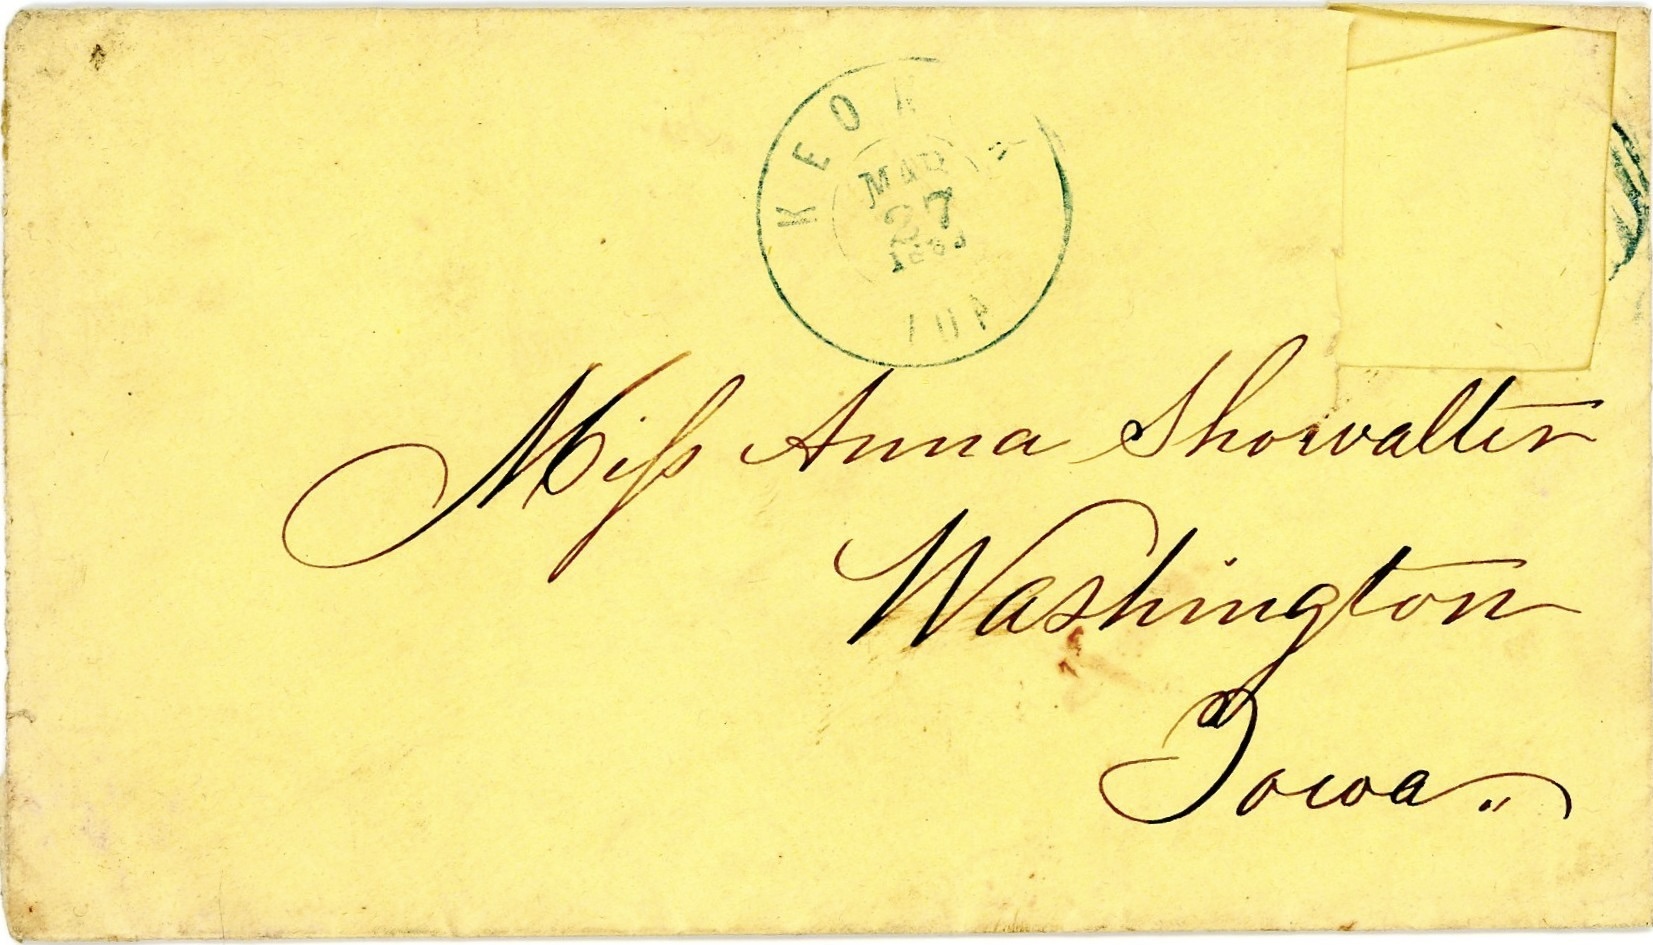 MAR
27
Miss Anna Showalter
Washington
Iowa